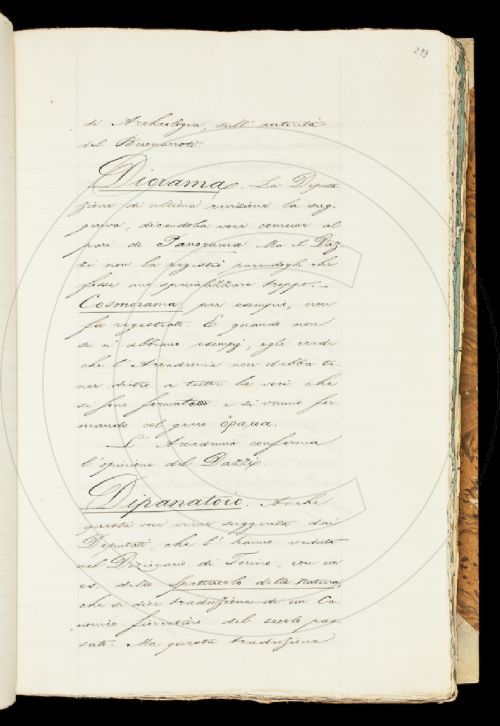 299
di Archeologia, sull'autorità
del Buonarroti.
Diorama. La Deputa
zione di ultima revisione la sug-
geriva, dicendola voce comune al
pari di Panorama. Ma il Daz-
zi non la registrò parendogli che
fosse uno specializzare troppo. —
Cosmorama, per esempio, non
fu registrato. E quando non
se n'abbiano esempj, egli crede
che l'Accademia non debba te-
ner dietro a tutte le voci che
si sono formate e si vanno for-
mando col greco ὅραμα.
L'Accademia conferma
l'opinione del Dazzi.
Dipanatoio. Anche
questa voce viene suggerita dai
Deputati, che l'hanno veduta
nel Dizionario di Torino, con un
es. dello Spettacolo della Natura,
che si dice traduzione di un Ca-
nonico fiorentino del secolo pas-
sato. Ma questa traduzione